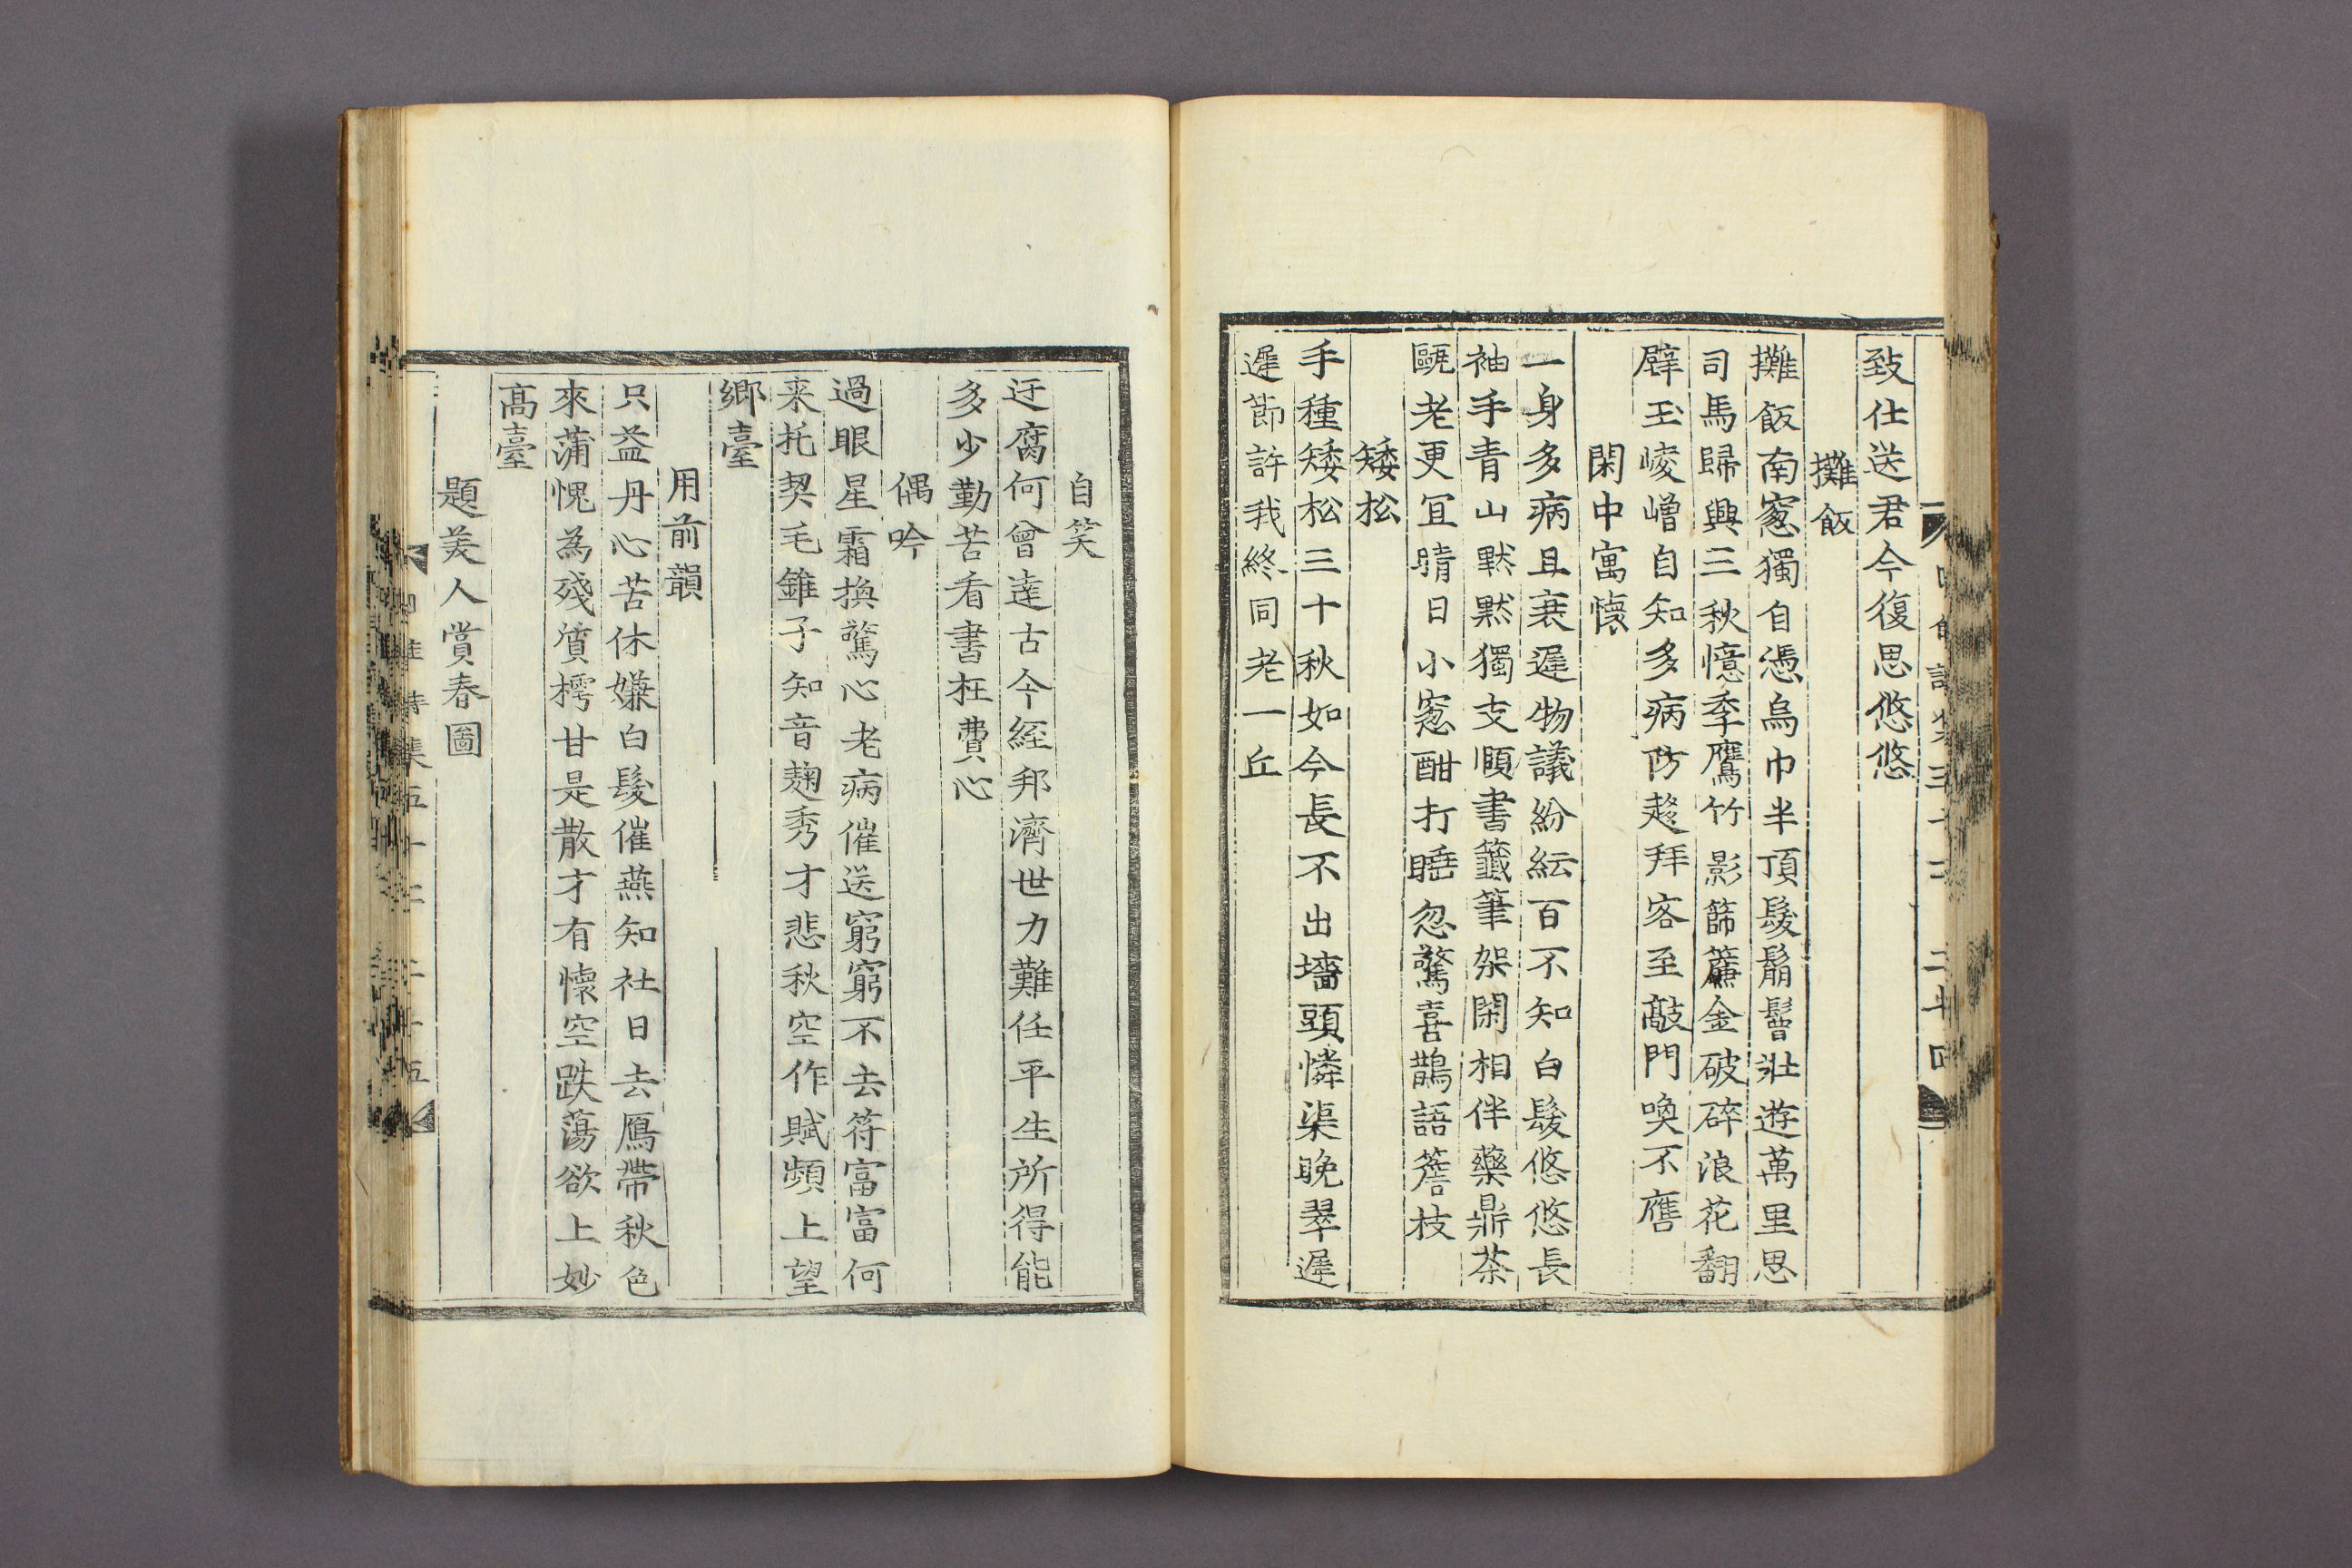 致仕送君今復思悠悠
攤飯
攤飯南窓獨自憑烏巾半頂髮鬅鬙壯遊萬里思
司馬歸興三秋憶季鷹竹影篩簾金破碎浪花翻
壁玉崚嶒自知多病防趍拜客至敲門喚不譍
閑中寓懷
一身多病且衰遲物議紛紜百不知白髮悠悠長
袖手青山默默獨支頤書籤筆架閑相伴藥鼎茶
甌老更宜晴日小窓酣打睡忽驚喜鵲語簷枝
矮松
手種矮松三十秋如今長不出墻頭憐渠晚翠遲
遲節許我終同老一丘
自笑
迂腐何曾達古今經邦濟世力難任平生所得能
多少勤苦看書枉費心
偶吟
過眼星霜換驚心老病催送窮窮不去符富富何
来托契毛錐子知音麹秀才悲秋空作賦頻上望
鄉臺
用前韻
只益丹心苦休嫌白髮催燕知社日去鴈帶秋色
來蒲愧為殘質樗甘是散才有懷空跌蕩欲上妙
高臺
題美人賞春圖
詩集五十二 二十五